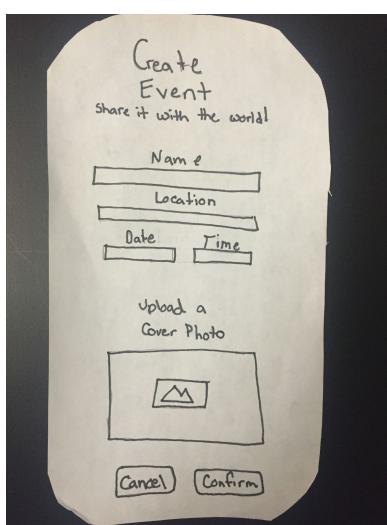 Create
Event
Share it with the world!
Name
Location
Date Time
Upload a
Cover Photo
Cancel Confirm